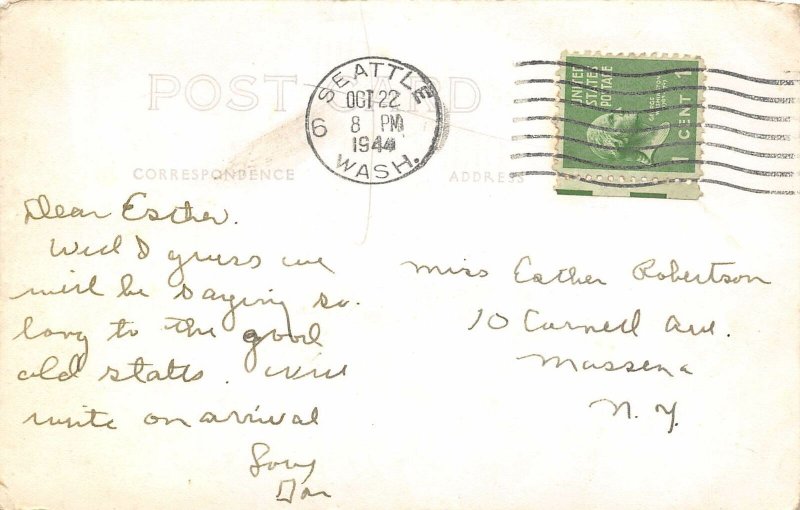 POST CARD
SEATTLE
OCT 22
8 PM
1944
WASH.
6
UNITED
STATES
POSTAGE
1 CENT 1
CORRESPONDENCE
ADDRESS
Dear Esther.
Well I guess we
will be saying so.
long to the good
old states. Will
write on arrival
Love
Miss Esther Robertson
10 Cornell Ave.
Massena
N. Y.